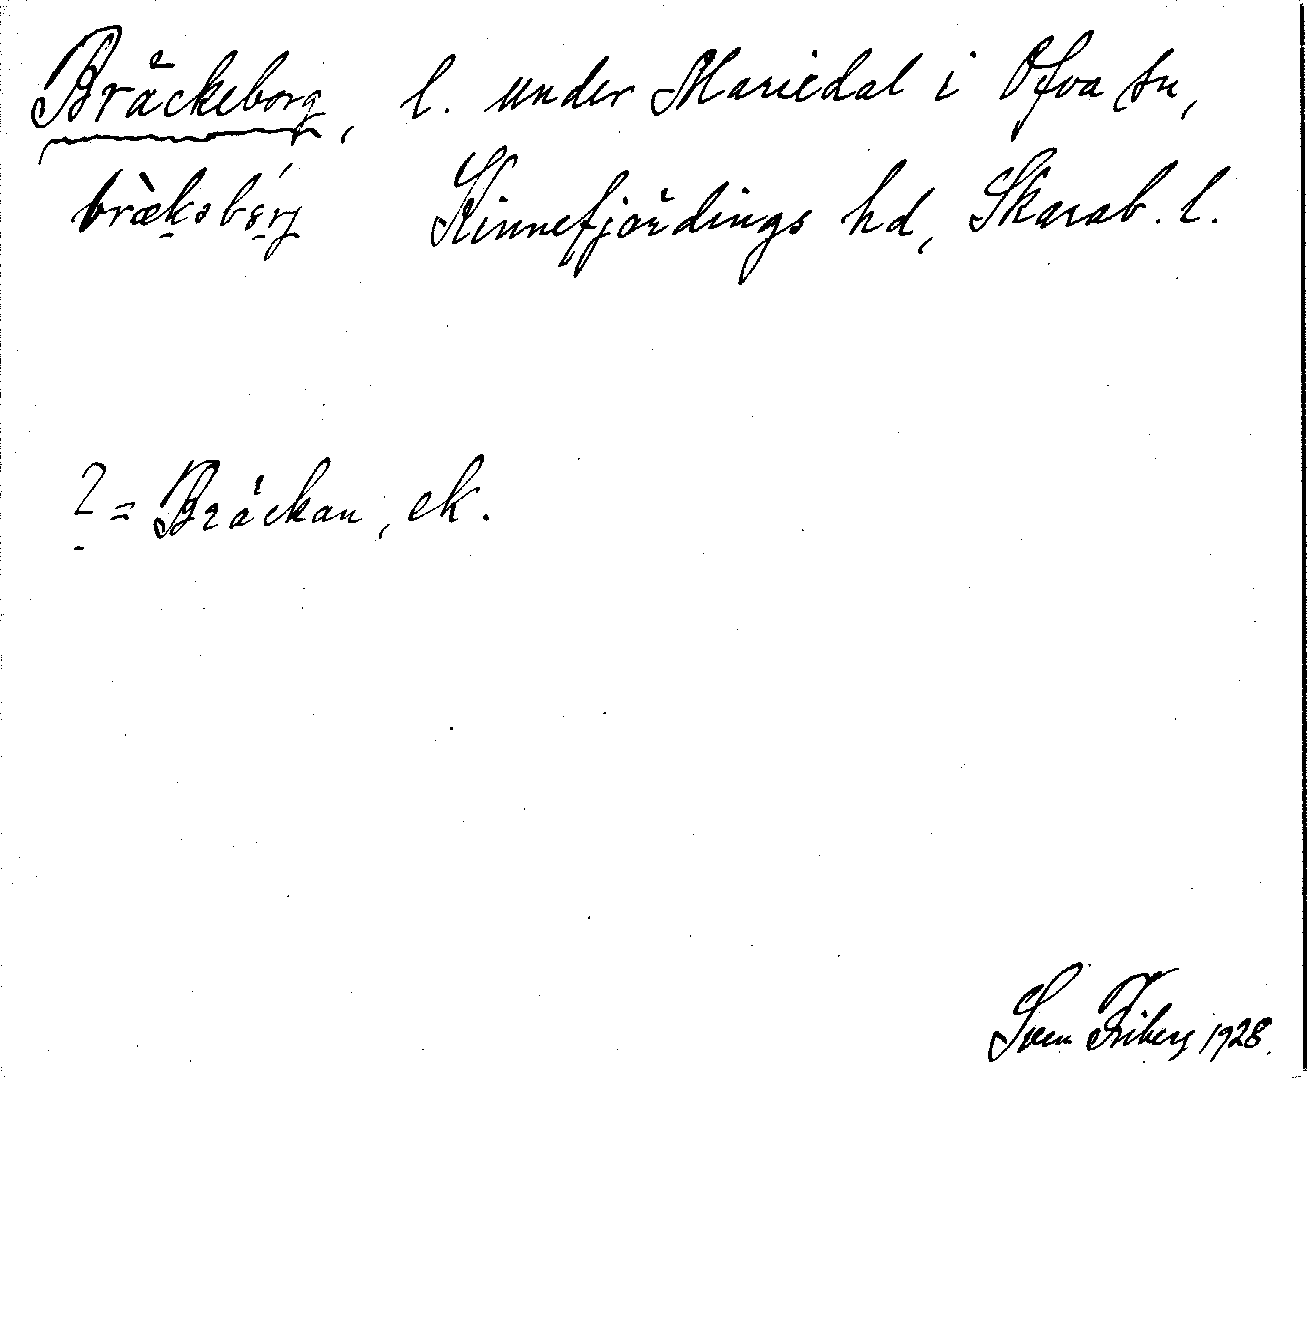 Bräckeborg, l. under Mariedal i Ofva sn,
Kinnefjärdings hd, Skarab. l.
? = Bräckan, ek.
Sven Friberg 1928.